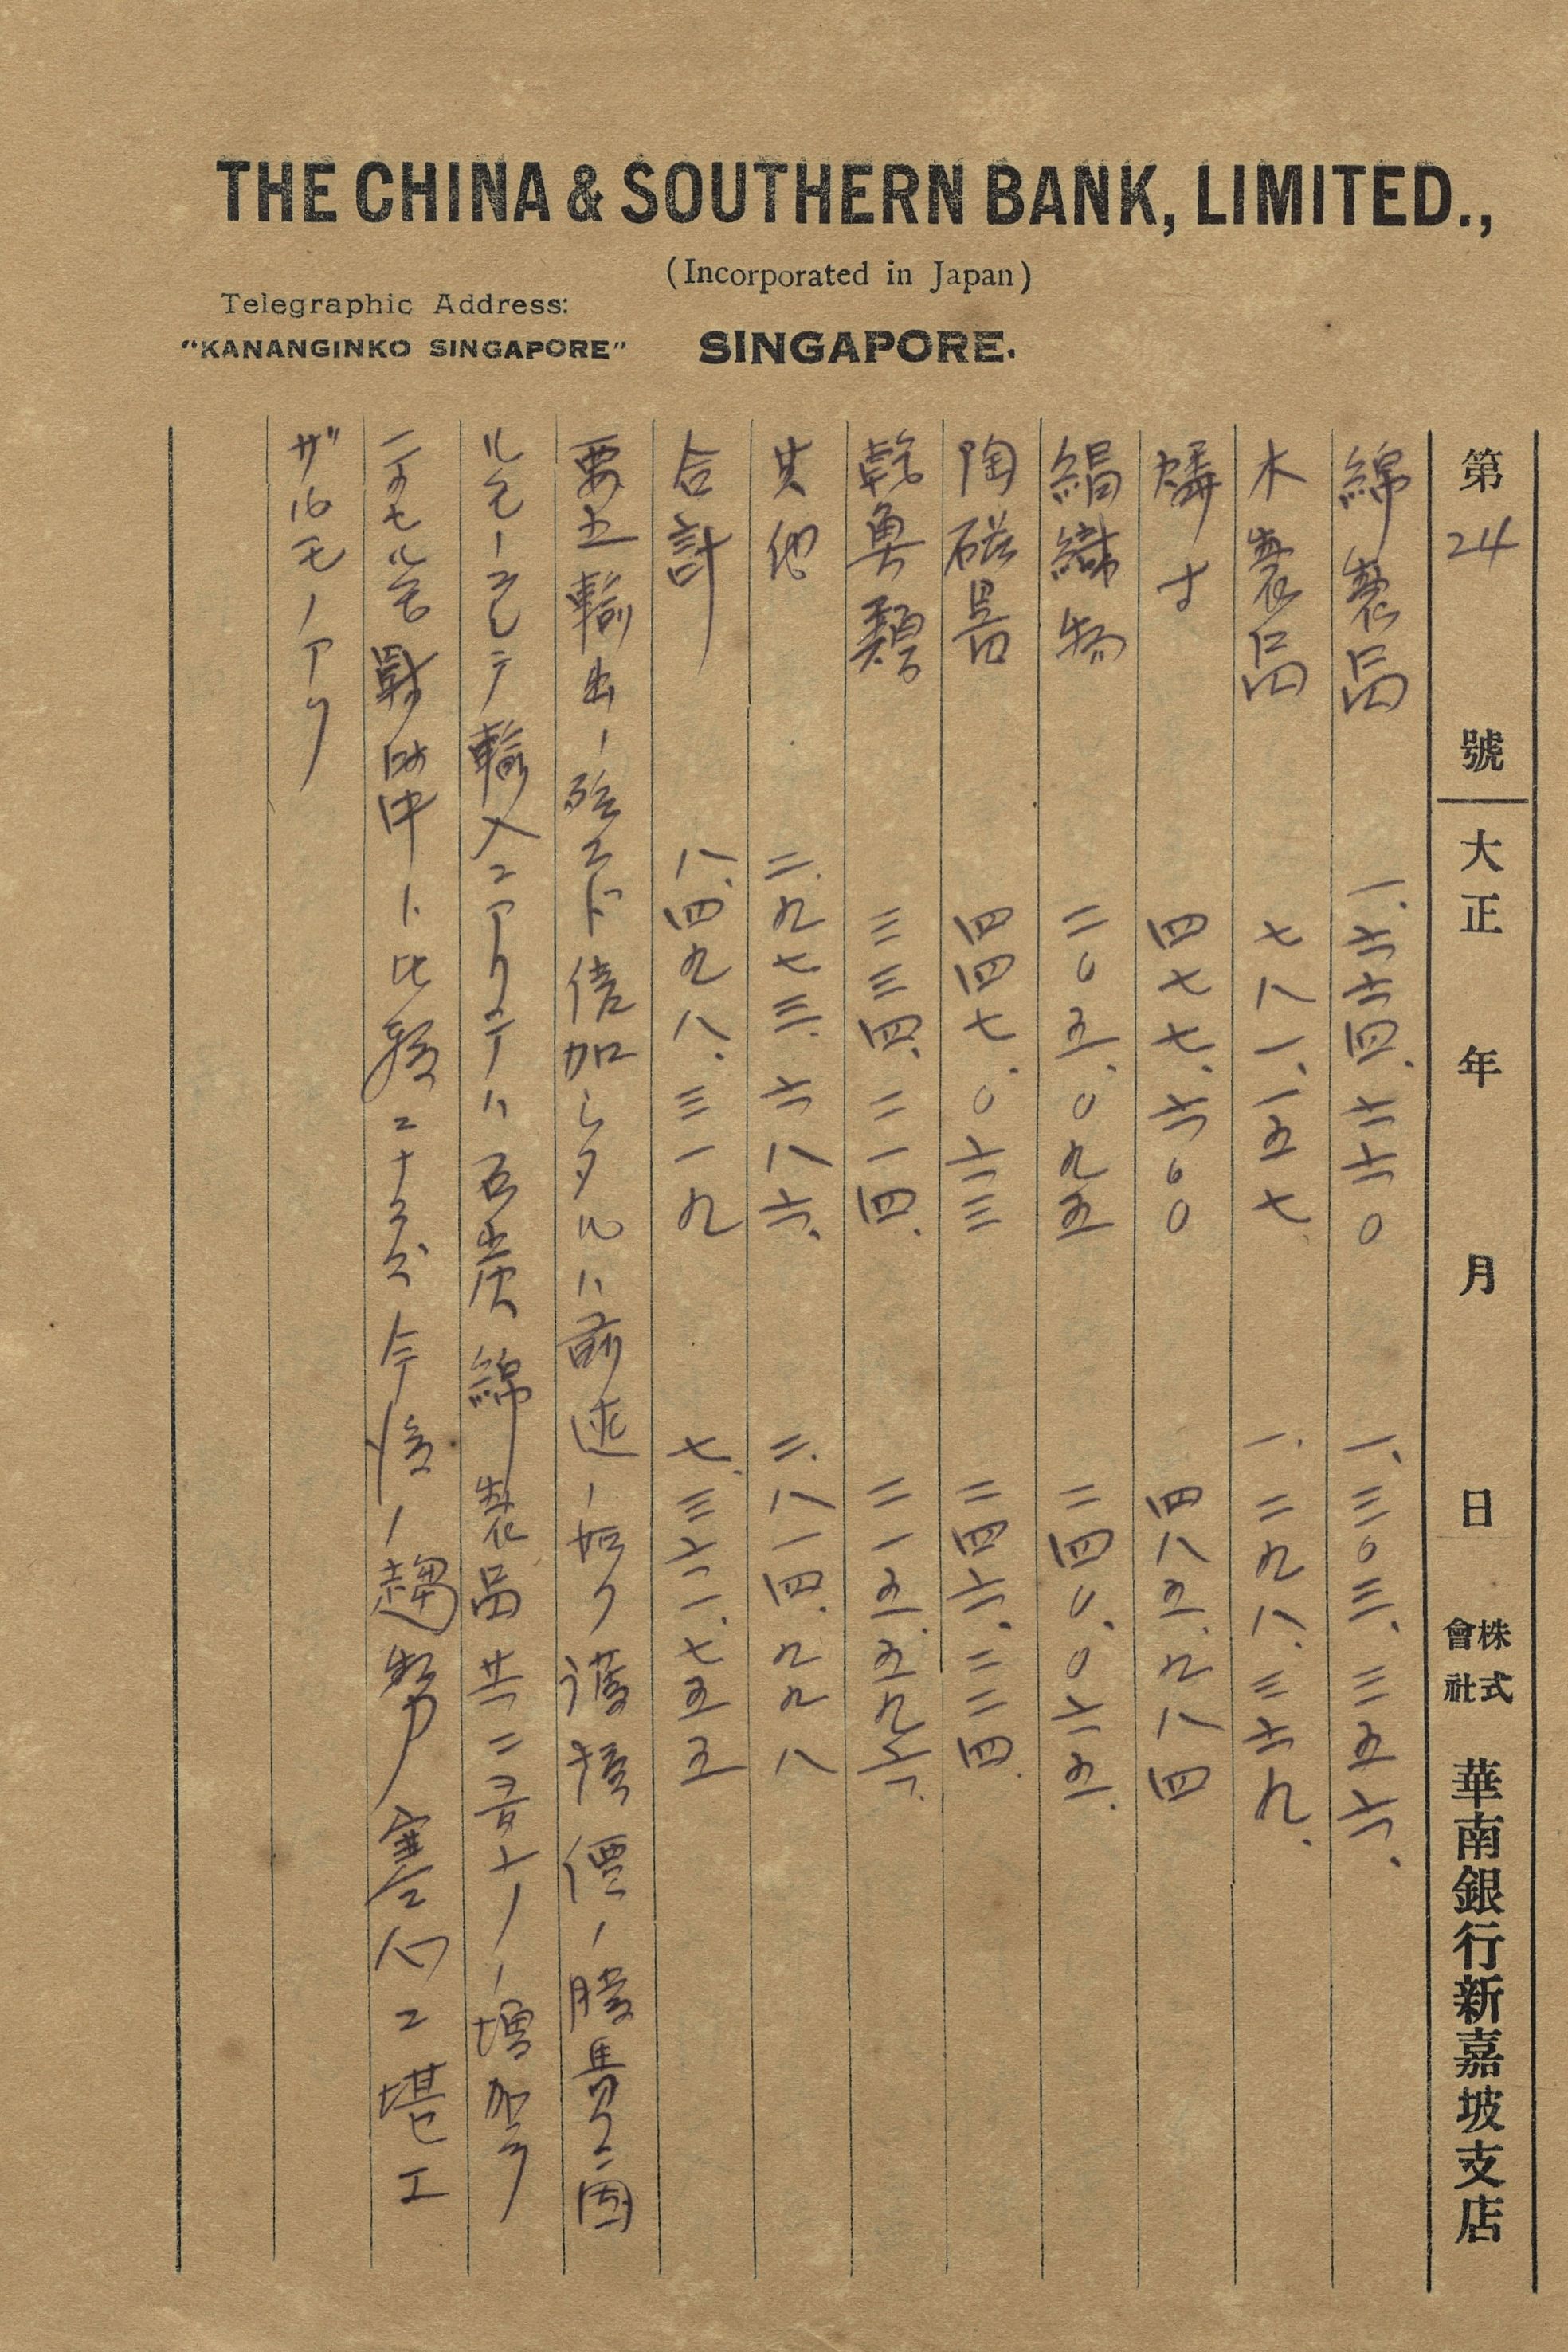 THE CHINA & SOUTHERN BANK, LIMITED.,
(Incorporated in Japan)
Telegraphic Address:
"KANANGINKO SINGAPORE"
SINGAPORE.
第24號 大正 年 月 日 株式會社 華南銀行新嘉坡支店
綿製品 一、六六四、六六〇 一、三〇三、三五六、
木製品 七八一、一五七、 一、二九八、三六九、
燐寸 四七七、六〇〇 四八五、九八四
絹織物 二〇五、〇九五 二四〇、〇六五、
陶磁器 四四七、〇六三 二四六、二二四、
乾魚類 三三四、二一四、 二一五、五九六、
其他 二、九七三、六八六、 二、八一四、九九八
合計 八、四九八、三一九 七、三六一、七五五
要之輸出ノ殆ンド倍加シタルハ前述ノ如ク護謨價ノ騰貴ニ因
ルモノニシテ輸入ニアリテハ石炭綿製品共ニ ノ増加ヲ
ニ 戰時中ト比較ニナラズ今後ノ趨勢寒心ニ堪エ
ザルモノアリ